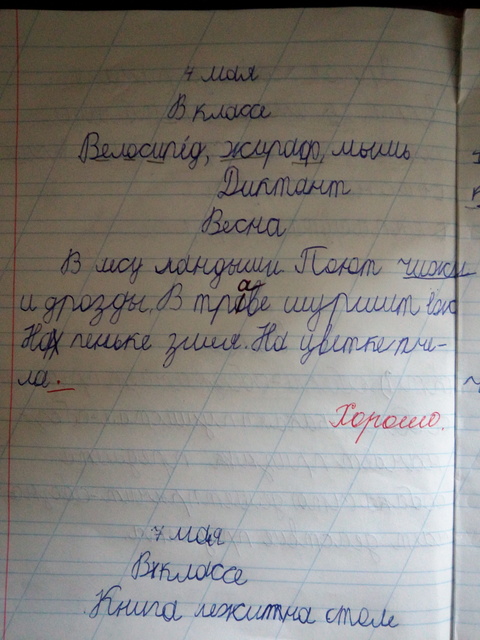 4 мая
В классе
Велосипед, жираф, мышь
Диктант
Весна
В лесу ландыши. Поют чижи
и дрозды. В траве шуршит ёж
На пеньке змея. На цветке пче-
ла.
Хорошо.
7 мая
В классе
Книга лежит на столе